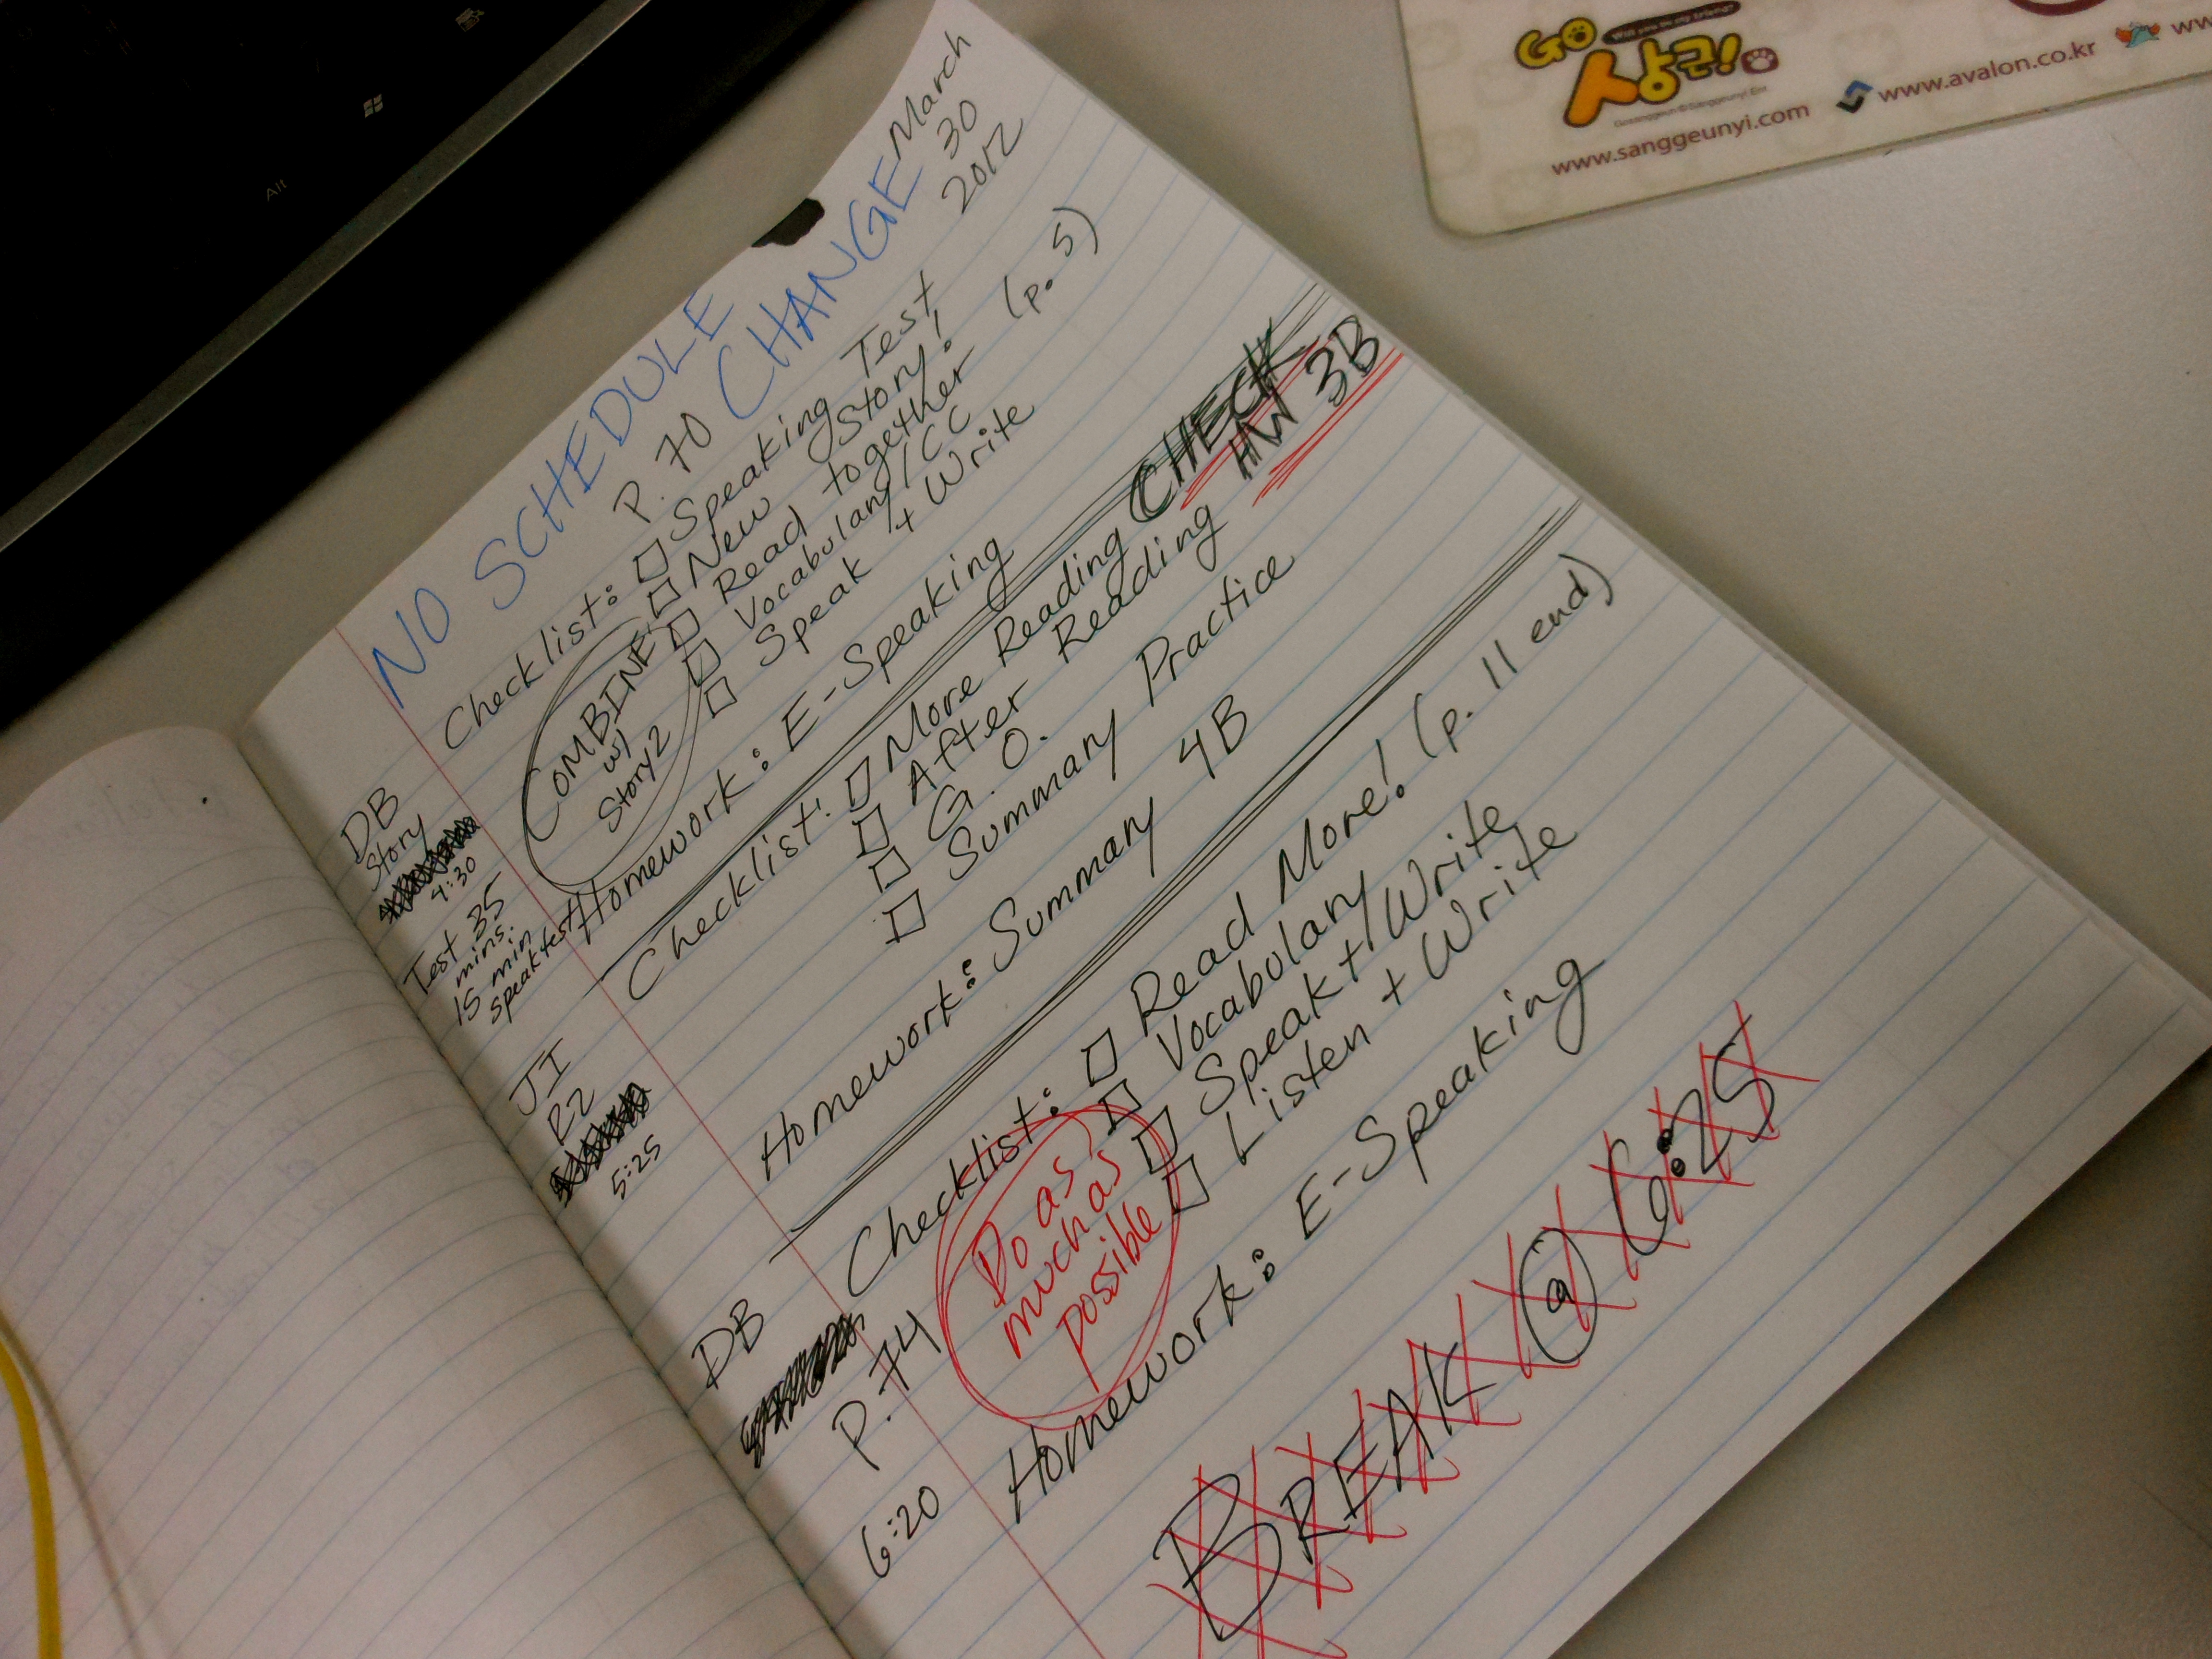 Alt
GO
상근!
www.sanggeunyi.com
www.avalon.co.kr
March
30
2012
NO SCHEDULE
CHANGE
P. 70
Checklist: Speaking Test
New Story!
Read together (p. 5)
Vocabulary/CC
Speak + Write
COMBINE
w/
Story 2
DB
Story
4:30
Test 35
mins.
15 min
speak test
Homework: E-Speaking
CHECK
HW 3B
Checklist: More Reading
After Reading
G. O.
Summary Practice
JI
R2
5:25
Homework: Summary 4B
Checklist: Read More! (p. 11 end)
Vocabulary
Speak + Write
Listen + Write
Do as
much as
possible
DB
P. 74
6:20
Homework: E-Speaking
BREAK @ 6:25